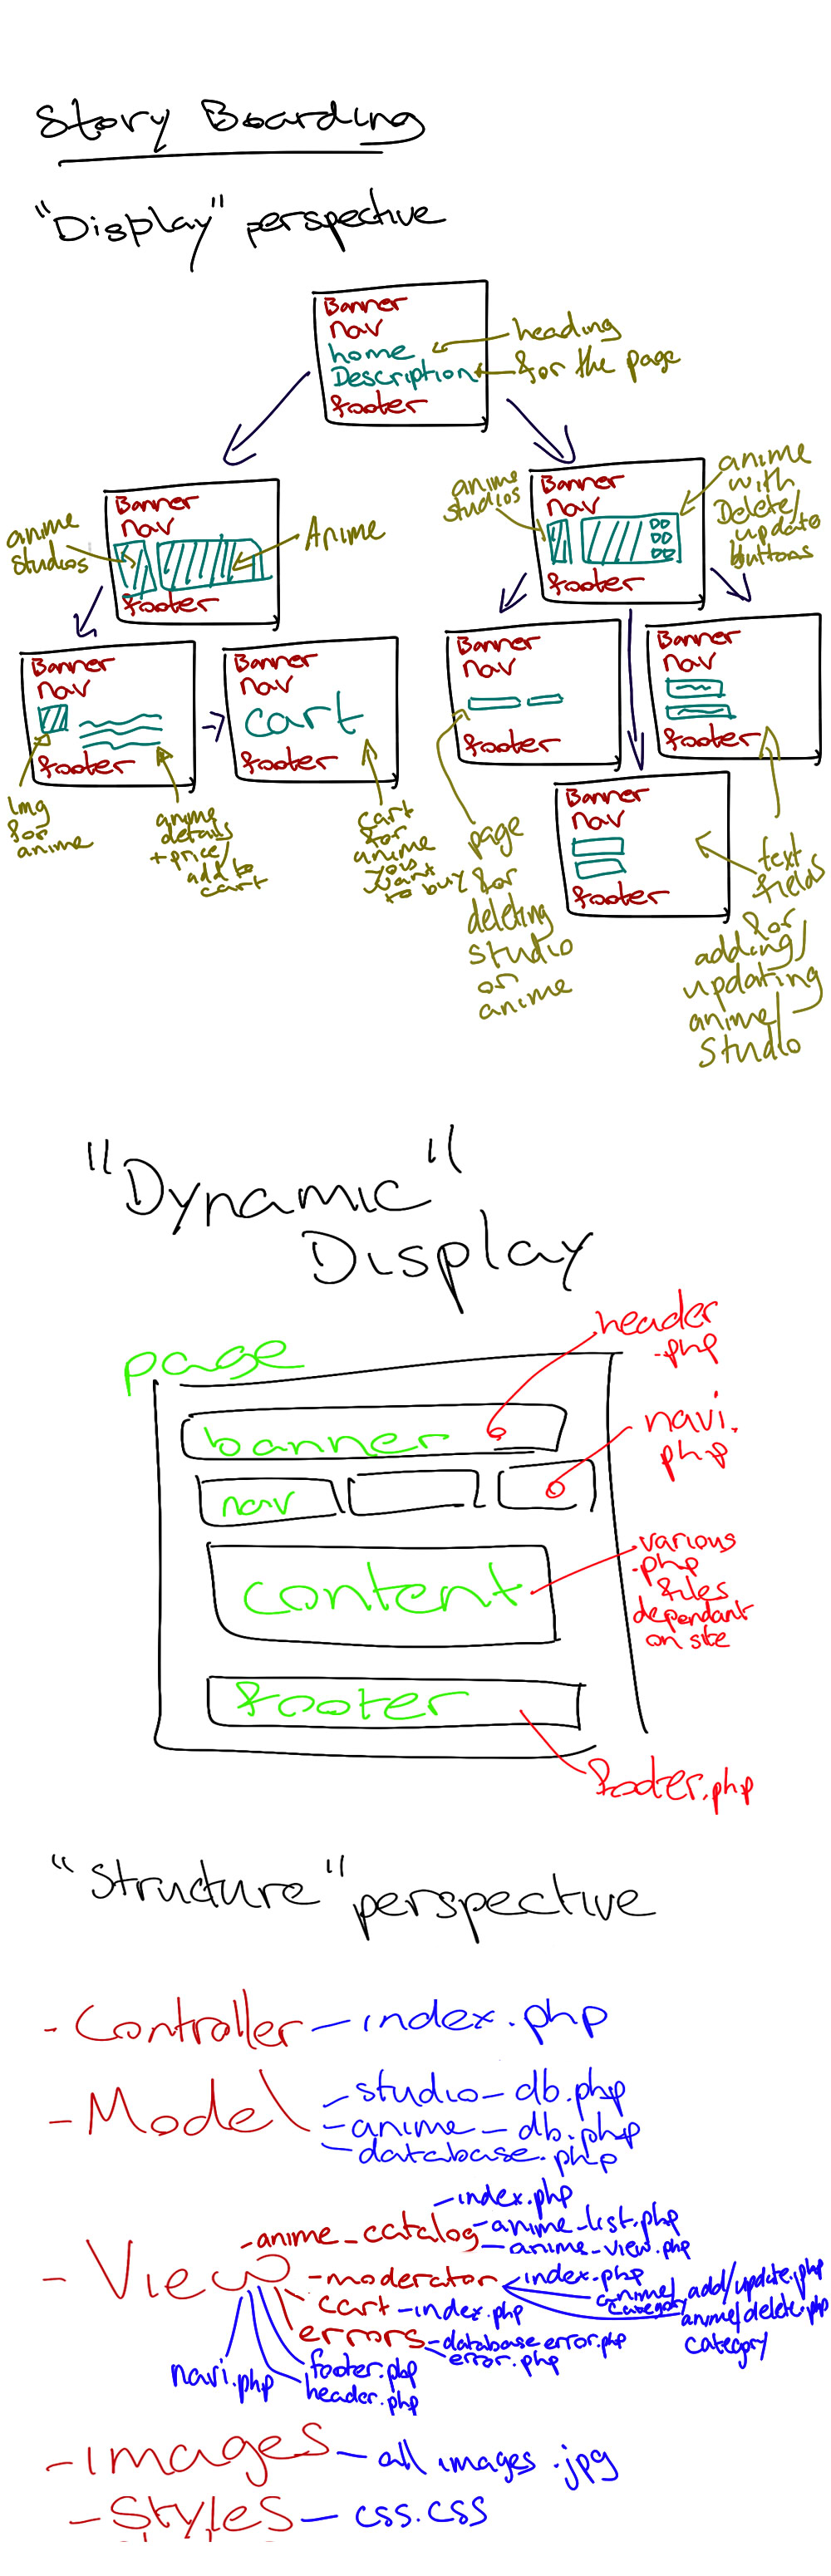 Story Boarding
"Display" perspective
Banner
nav
home
Description
footer
heading
for the page
Banner
nav
footer
anime
studios
Anime
Banner
nav
footer
anime
studios
anime
with
Delete/
update
buttons
Banner
nav
footer
Img
for
anime
anime
details
+price/
add to
cart
Banner
nav
cart
footer
cart
for
anime
you
want
to buy
Banner
nav
footer
page
for
deleting
studio
or
anime
Banner
nav
footer
Banner
nav
footer
text
fields
for
adding/
updating
anime/
Studio
"Dynamic"
Display
page
header
.php
banner
navi.
php
nav
content
various
.php
files
dependant
on site
footer
footer.php
"Structure" perspective
- Controller - index.php
- Model - studio_db.php
- anime_db.php
- database.php
- View
- anime_catalog
- index.php
- anime_list.php
- anime_view.php
- moderator
index.php
anime/
category
add/update.php
anime/delete.php
category
cart - index.php
errors - database error.php
error.php
navi.php
footer.php
header.php
- images - all images .jpg
- Styles - css.css